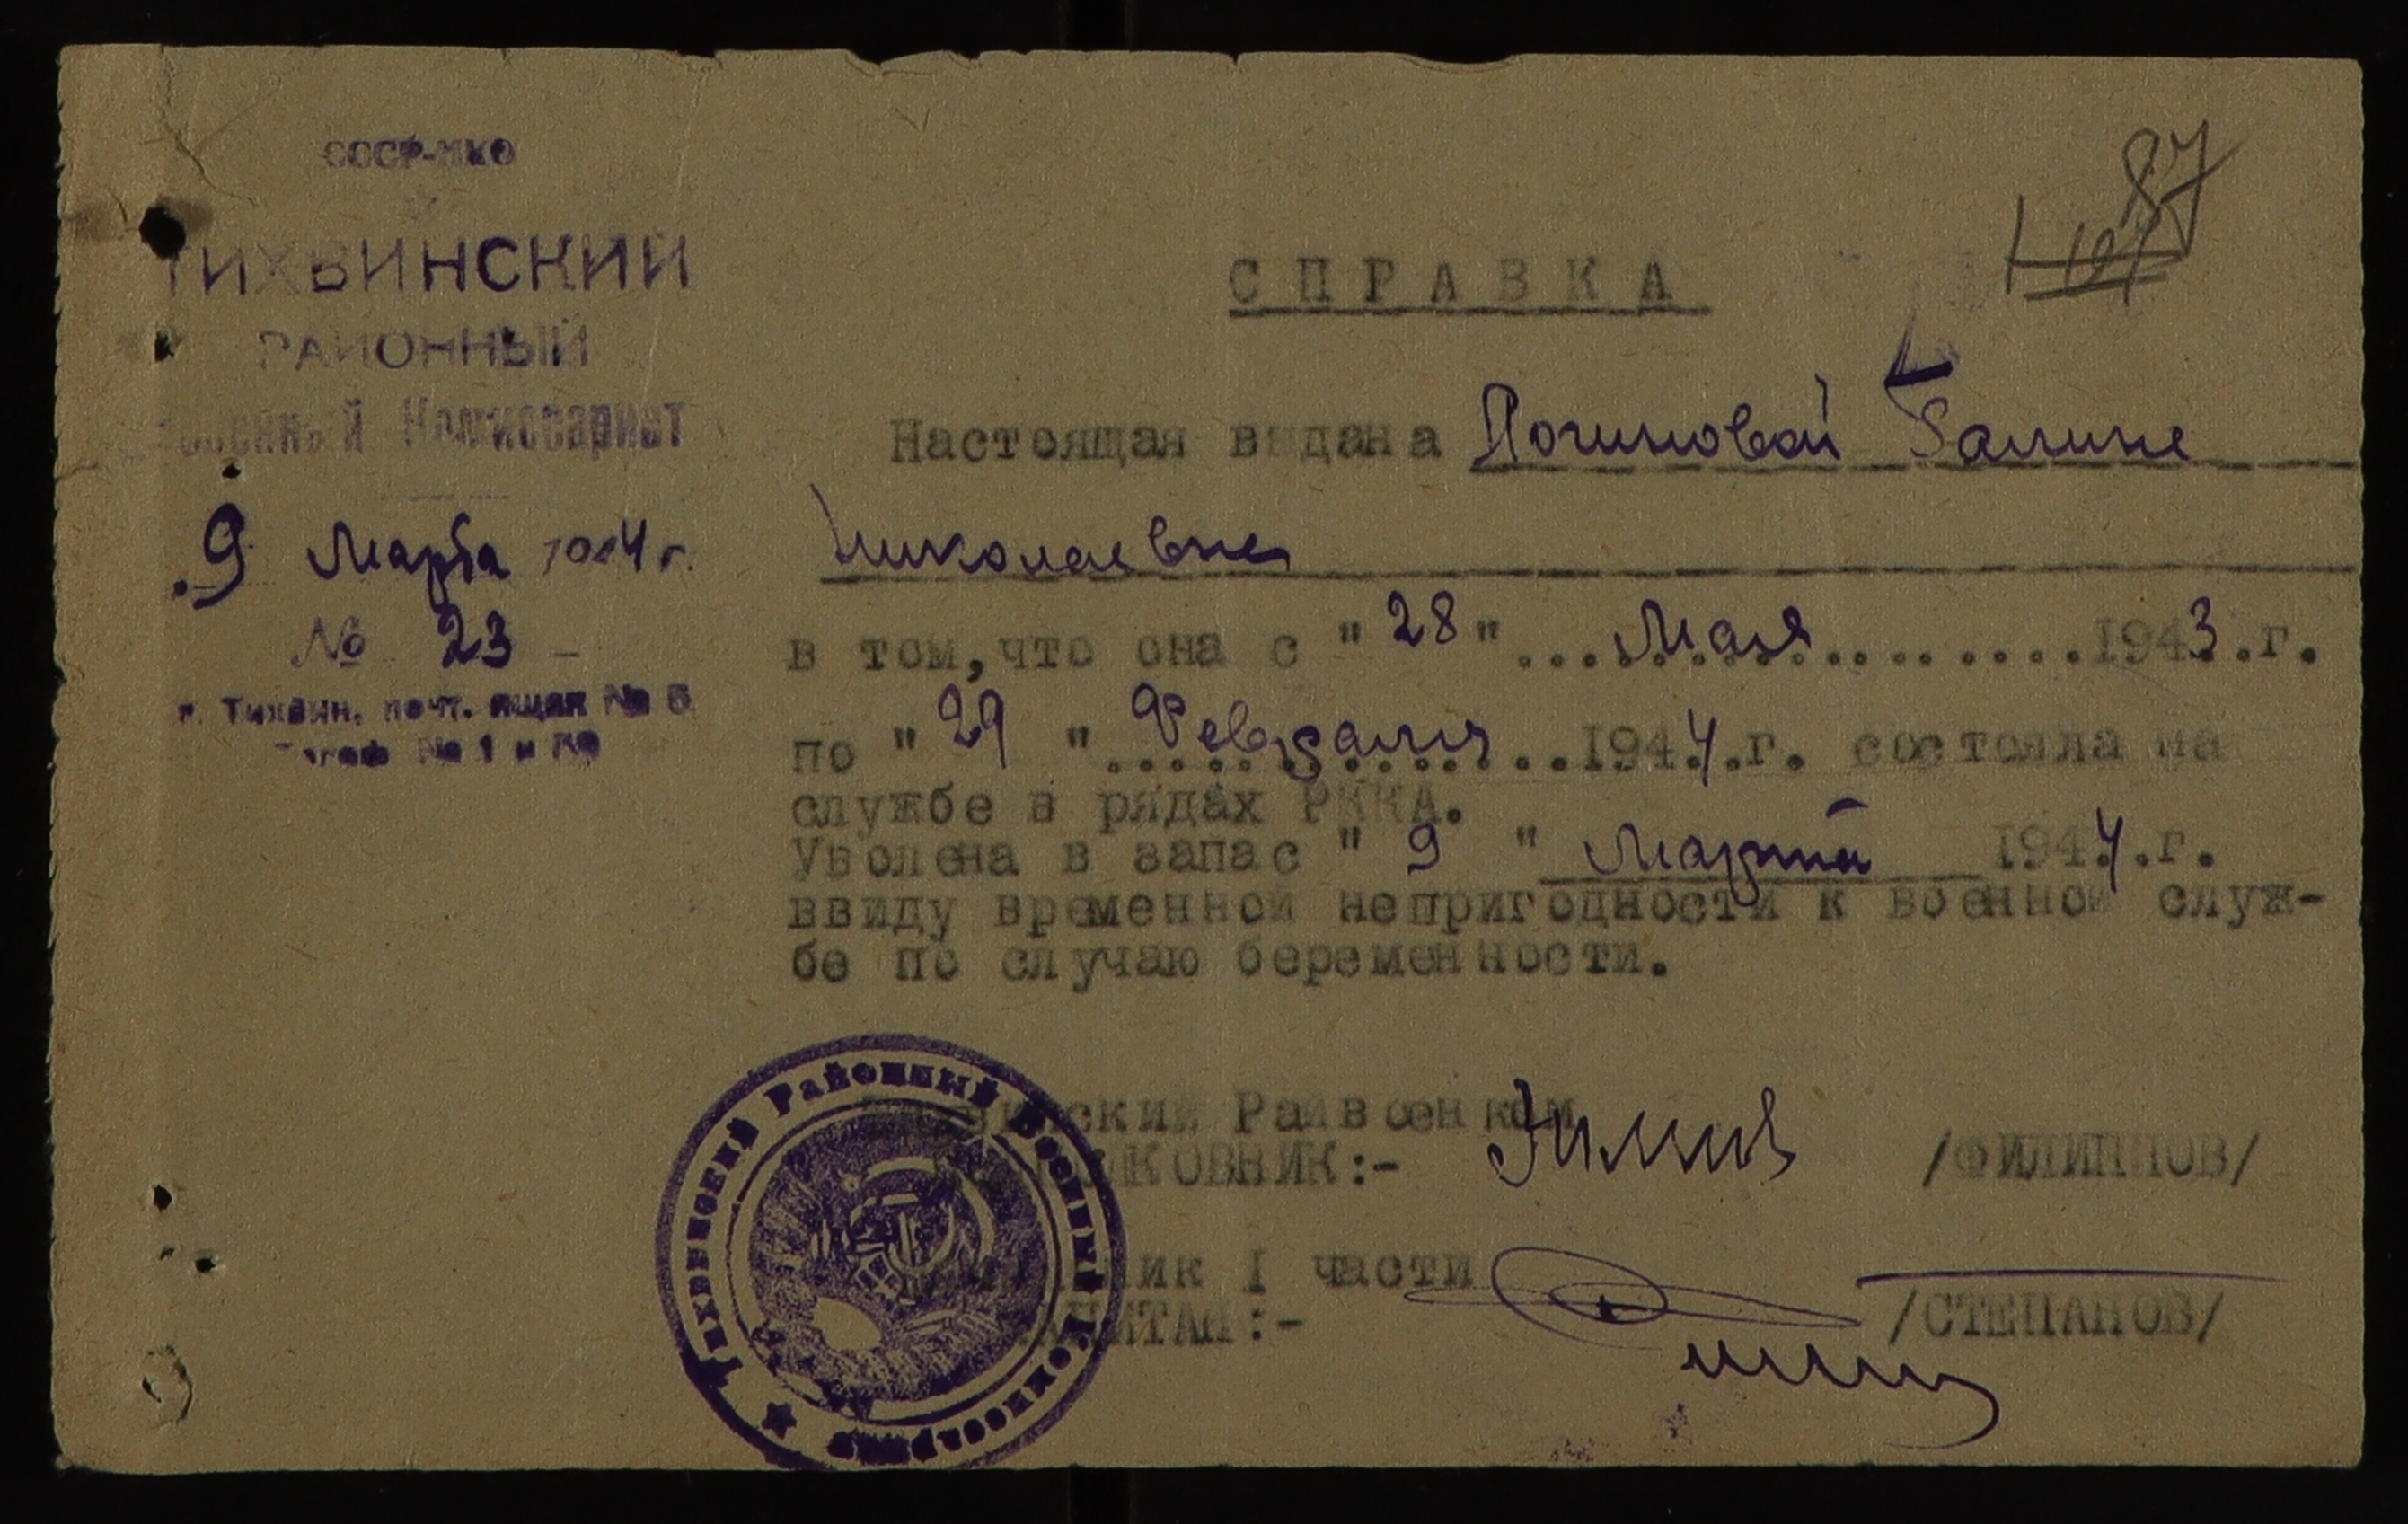 СССР-НКО
ТИХВИНСКИЙ
РАЙОННЫЙ
Военный Комиссариат
9 Марта 1944 г.
№ 23 -
г. Тихвин, почт. ящик № 5
87
СПРАВКА
Настоящая выдана Логиновой Галине
Николаевне
в том, что она с "28" ... Мая ... 1943.г.
по "29" Февраля 1944.г. состояла на
службе в рядах РККА.
Уволена в запас "9" Марта 1944.г.
ввиду временной непригодности к военной служ-
бе по случаю беременности.
Тихвинский Райвоенком
ПОЛКОВНИК:- /ФИЛИППОВ/
Начальник I части
КАПИТАН:- /СТЕПАНОВ/
Тихвинский Районный Военный Комиссариат